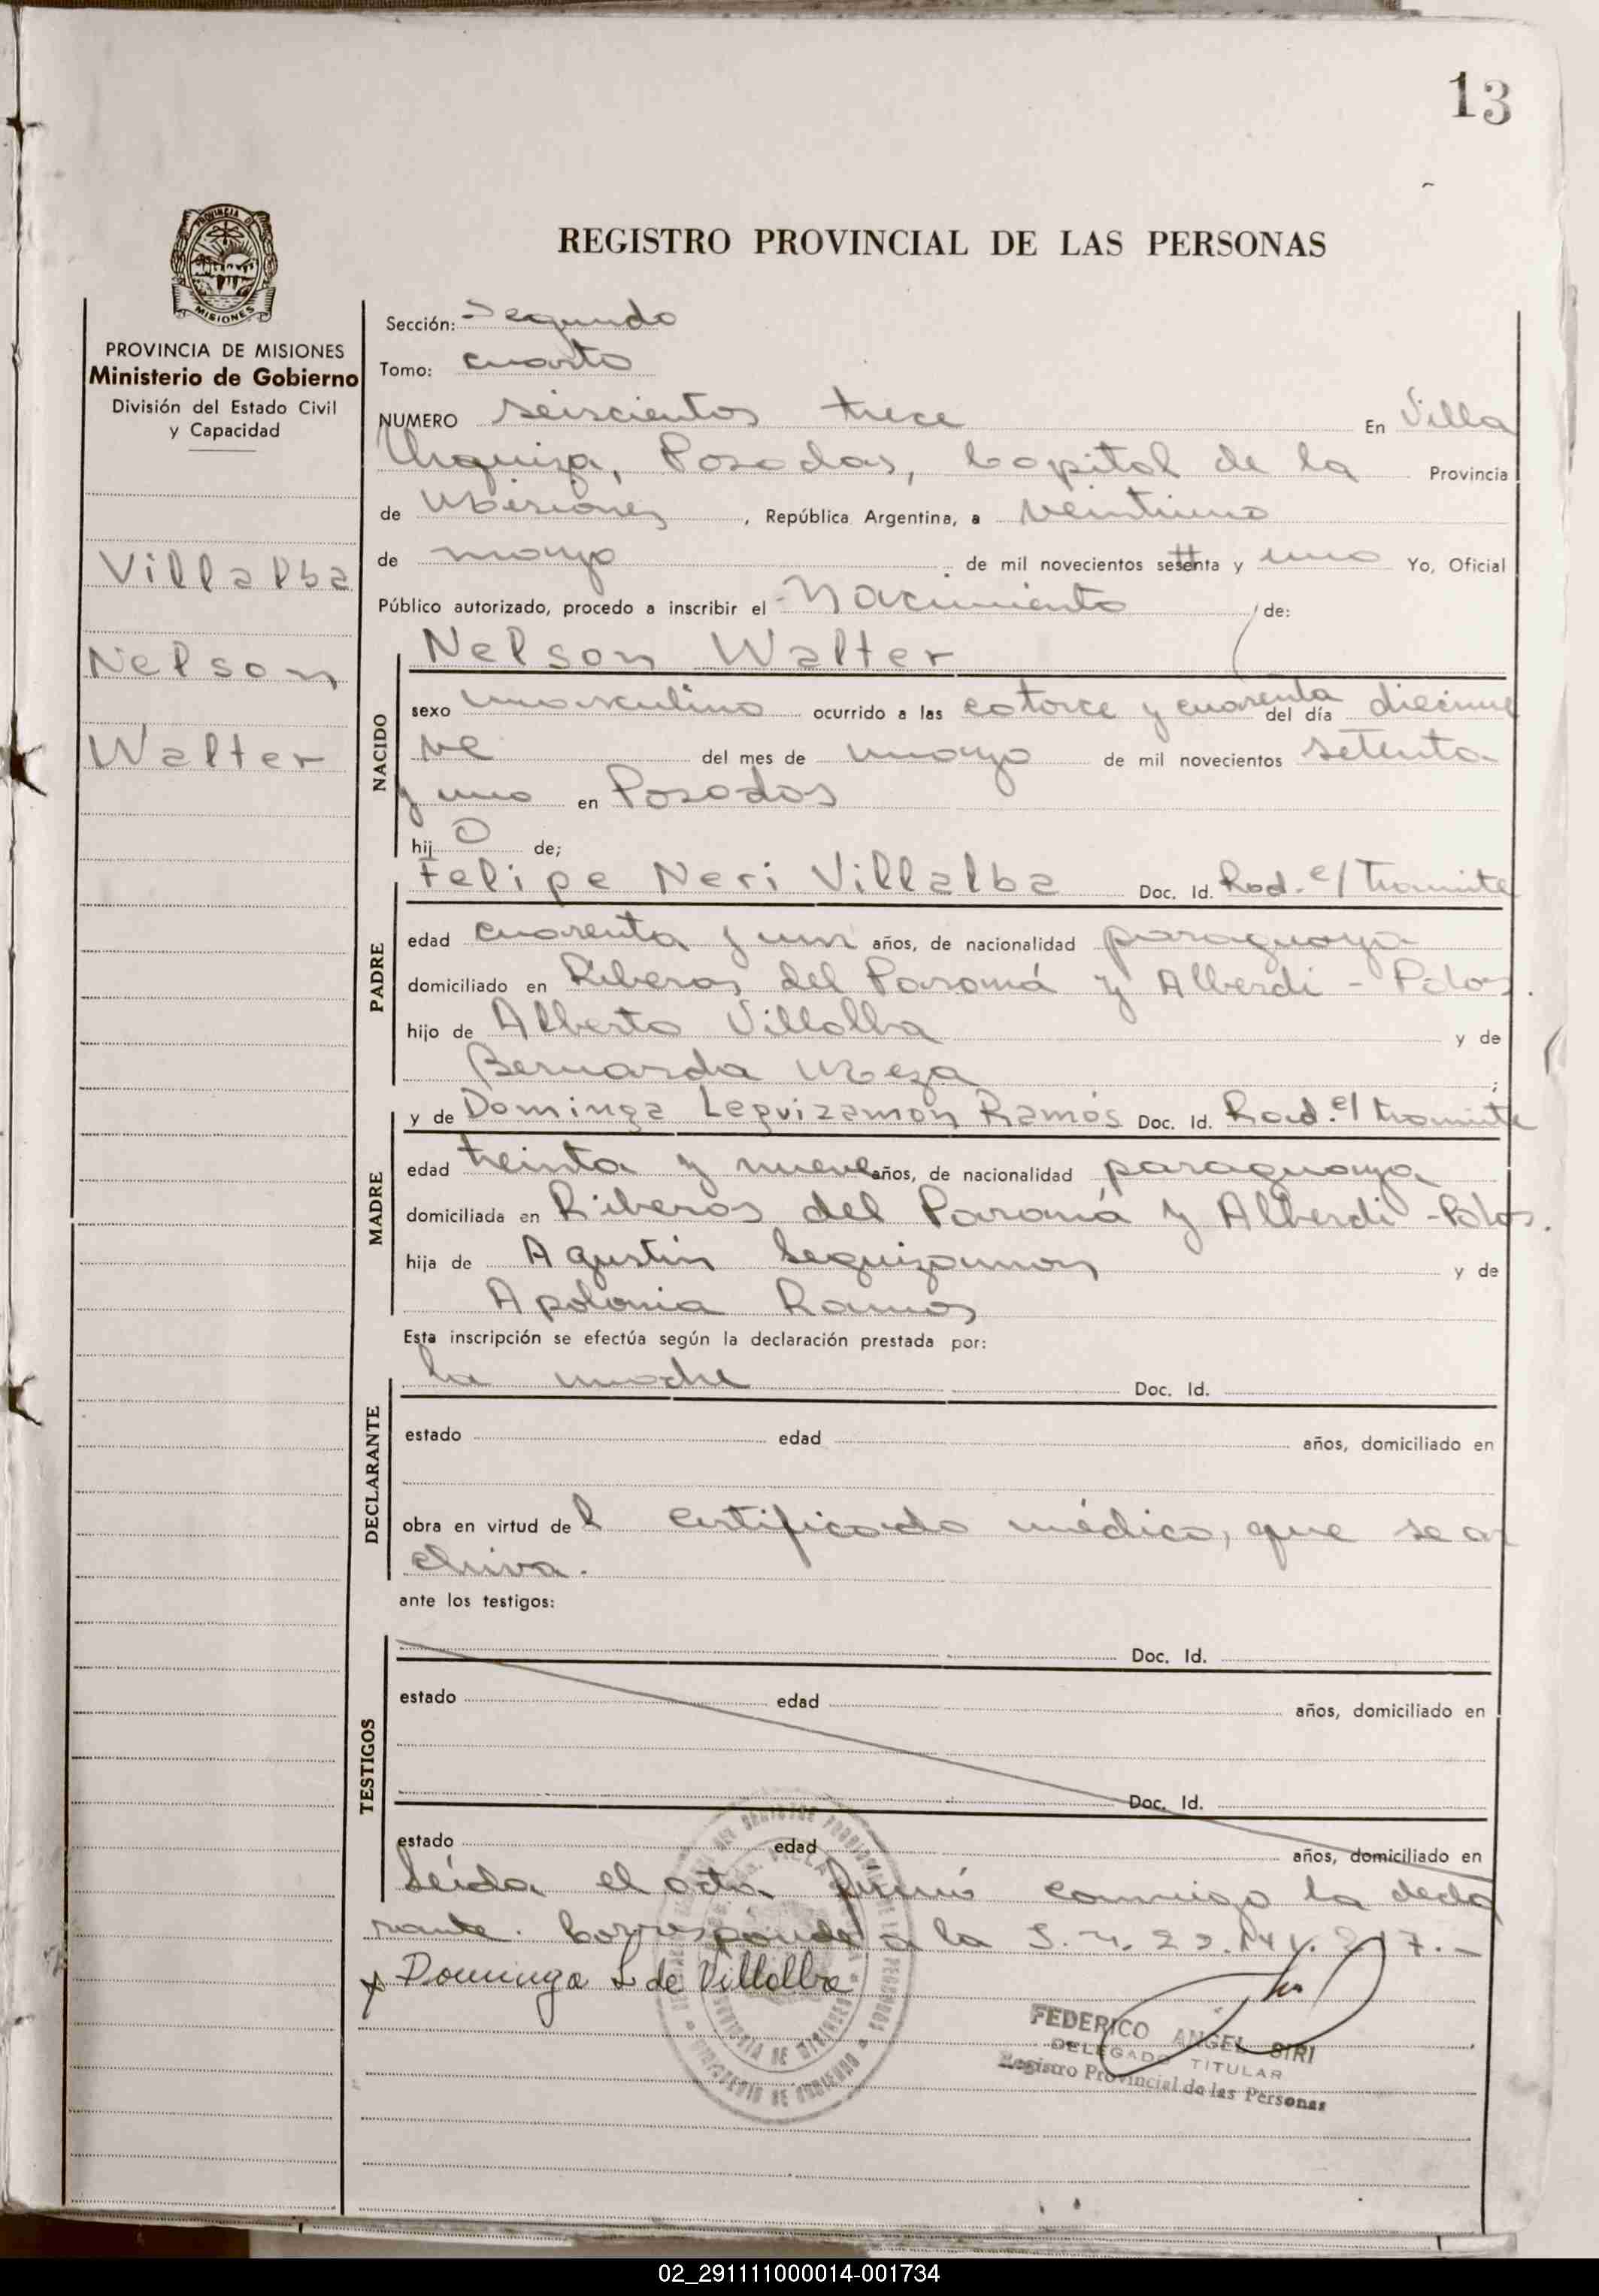 13
PROVINCIA DE
MISIONES
REGISTRO PROVINCIAL DE LAS PERSONAS
PROVINCIA DE MISIONES
Ministerio de Gobierno
División del Estado Civil
y Capacidad
Villalba
Nelson
Walter
Sección: Segundo
Tomo: cuarto
NUMERO seiscientos trece En Villa
Urquiza, Posadas, Capital de la Provincia
de Misiones, República Argentina, a veintiuno
de mayo de mil novecientos setenta y uno Yo, Oficial
Público autorizado, procedo a inscribir el Nacimiento de:
NACIDO
Nelson Walter
sexo masculino ocurrido a las catorce y cuarenta del día diecinue
ve del mes de mayo de mil novecientos setenta
y uno en Posadas
hijo de;
PADRE
Felipe Neri Villalba Doc. Id. Rad. e/ tramite
edad cuarenta y un años, de nacionalidad paraguaya
domiciliado en Riberas del Paraná y Alberdi - Pdas.
hijo de Alberto Villalba y de
Bernarda Meza ;
MADRE
y de Dominga Leguizamon Ramos Doc. Id. Rad. e/ tramite
edad treinta y nueve años, de nacionalidad paraguaya
domiciliada en Riberas del Paraná y Alberdi - Pdas.
hija de Agustin Leguizamon y de
Apolonia Ramos
Esta inscripción se efectúa según la declaración prestada por:
DECLARANTE
la madre Doc. Id.
estado edad años, domiciliado en
obra en virtud del certificado médico, que se ar
chiva.
ante los testigos:
TESTIGOS
Doc. Id.
estado edad años, domiciliado en
Doc. Id.
estado edad años, domiciliado en
Leída el acta firmó conmigo la decla
rante. Corresponde a la
x Dominga L de Villalba
FEDERICO ANGEL SIRI
DELEGADO TITULAR
Registro Provincial de las Personas
02_291111000014-001734